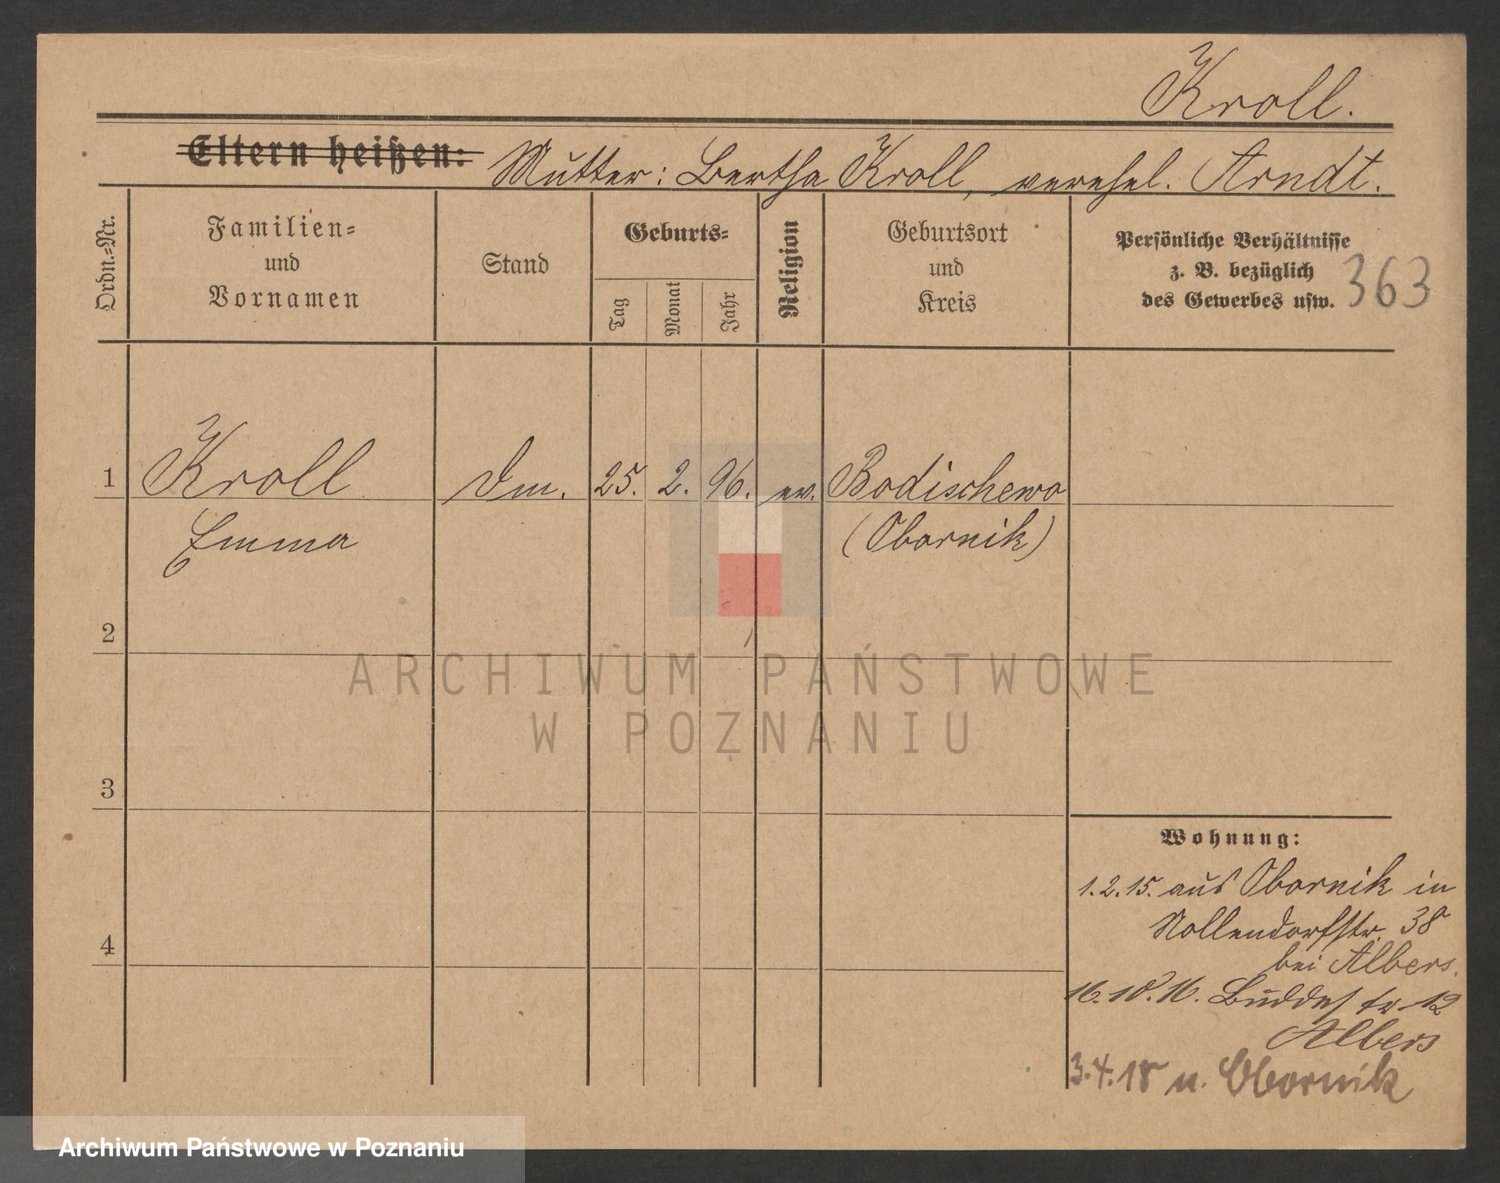 Kroll.
Eltern heißen: Mutter: Bertha Kroll, verehel. Arndt.
Ordn.-Nr.
Familien- und Vornamen
Stand
Geburts-
Tag
Monat
Jahr
Religion
Geburtsort und Kreis
Persönliche Verhältnisse
z. B. bezüglich
des Gewerbes usw. 363
1 Kroll Dm. 25. 2. 96. ev. Bodischewo
Emma (Obornik)
2
ARCHIWUM PAŃSTWOWE
W POZNANIU
3
Wohnung:
1.2.15. aus Obornik in
Nollendorfstr. 38
4
bei Albers.
16.10.16. Buddestr 12
Albers
3.4.18 n. Obornik
Archiwum Państwowe w Poznaniu